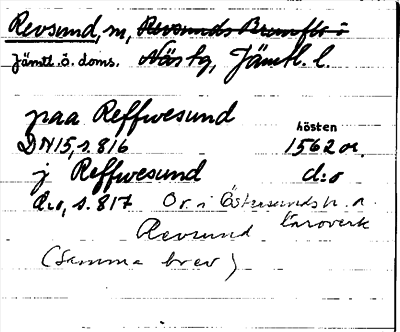 Revsund, sn, Revsunds Brunflo i
Jämtl. ö. doms. Näs tg, Jämtl. l.
paa Reffwesund
hösten
DN15, s. 816 1562 or.
j Reffwesund d:o
d:o, s. 817 Or. i Östersunds h. a.
läroverk
Revsund
(Samma brev)